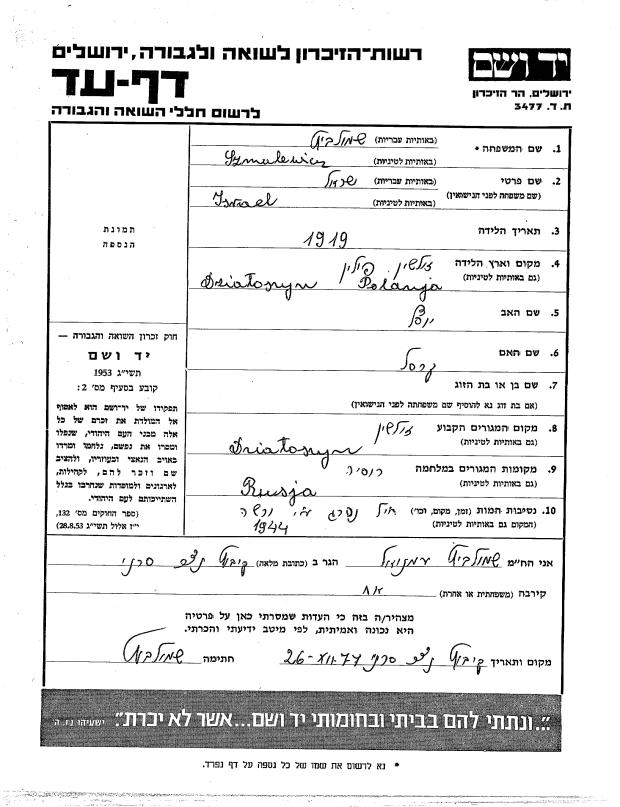 רשות-הזיכרון לשואה ולגבורה, ירושלים
דף-עד
לרשום חללי השואה והגבורה
יד ושם
ירושלים, הר הזיכרון
ת. ד. 3477
1. שם המשפחה * (באותיות עבריות) שמולביץ
(באותיות לטיניות) Szmulewicz
2. שם פרטי (באותיות עבריות) ישראל
(שם משפחה לפני הנישואין) (באותיות לטיניות) Israel
3. תאריך הלידה 1919
4. מקום וארץ הלידה זלושין פולין
(גם באותיות לטיניות) Dziatoszyn Polanja
5. שם האב
6. שם האם
7. שם בן או בת הזוג
(אם בת זוג נא להוסיף שם משפחתה לפני הנישואין)
8. מקום המגורים הקבוע
(גם באותיות לטיניות) Dziatoszyn
9. מקומות המגורים במלחמה רוסיה
(גם באותיות לטיניות) Rusja
10. נסיבות המות (זמן, מקום, וכו') חיל נהרג ורשה
(המקום גם באותיות לטיניות) 1944
תמונת
הנספה
חוק זכרון השואה והגבורה —
יד ושם
תשי״ג 1953
קובע בסעיף מס' 2:
תפקידו של יד-ושם הוא לאסוף
אל המולדת את זכרם של כל
אלה מבני העם היהודי, שנפלו
ומסרו את נפשם, נלחמו ומרדו
באויב הנאצי ובעוזריו, ולהציב
שם וזכר להם, לקהילות,
לארגונים ולמוסדות שנחרבו בגלל
השתייכותם לעם היהודי.
(ספר החוקים מס' 132,
י״ז אלול תשי״ג 28.8.53)
אני הח״מ שמולביץ עמנואל הגר ב (כתובת מלאה) קיבוץ נצר סרני
קירבה (משפחתית או אחרת) אח
מצהיר/ה בזה כי העדות שמסרתי כאן על פרטיה
היא נכונה ואמיתית, לפי מיטב ידיעתי והכרתי.
מקום ותאריך קיבוץ נצר סרני 26-VII-77 חתימה שמולביץ
"...ונתתי להם בביתי ובחומותי יד ושם...אשר לא יכרת". ישעיהו נו,ה
* נא לרשום את שמו של כל נספה על דף נפרד.